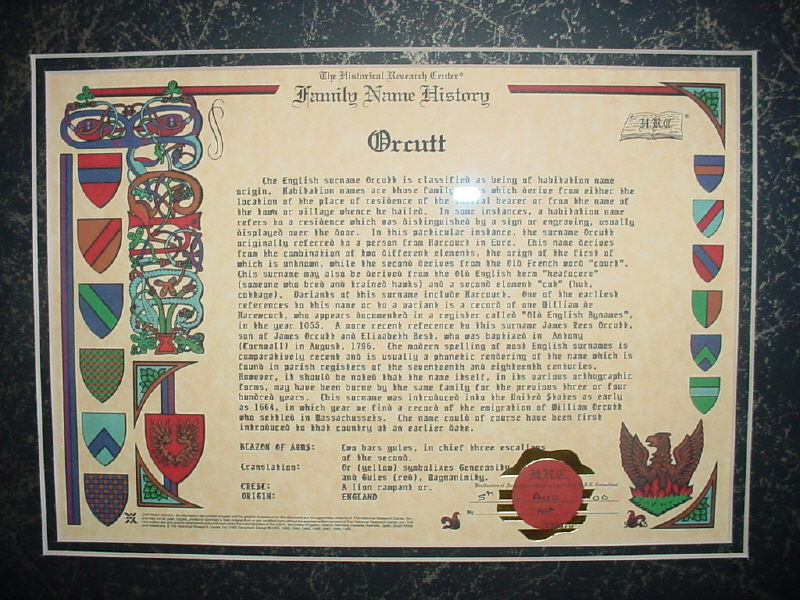 The Historical Research Center®
Family Name History
H.R.C.®
Orcutt
The English surname Orcutt is classified as being of habitation name
origin. Habitation names are those family which derive from either the
location of the place of residence of the bearer or from the name of
the town or village whence he hailed. In some instances, a habitation name
refers to a residence which was distinguished by a sign or engraving, usually
displayed over the door. In this particular instance, the surname Orcutt
originally referred to a person from Harcourt in Eure. This name derives
from the combination of two different elements, the origin of the first of
which is unknown, while the second derives from the Old French word "court".
This surname may also be derived from the Old English term "heafocere"
(someone who bred and trained hawks) and a second element "cot" (hut,
cottage). Variants of this surname include Harcourt. One of the earliest
references to this name or to a variant is a record of one William de
who appears documented in a register called "Old English Bynames",
in the year 1055. A more recent reference to this surname James Rees Orcutt,
son of James Orcutt and Elizabeth Best, who was baptized in Antony
(Cornwall) in August, 1796. The modern spelling of most English surnames is
comparatively recent and is usually a phonetic rendering of the name which is
found in parish registers of the seventeenth and eighteenth centuries.
However, it should be noted that the name itself, in its various orthographic
forms, may have been borne by the same family for the previous three or four
hundred years. This surname was introduced into the United States as early
as 1664, in which year we find a record of the emigration of William Orcutt
who settled in Massachussets. The name could of course have been first
introduced to that country at an earlier date.
BLAZON OF ARMS: Two bars gules, in chief three escallops
of the second.
Translation: Or (yellow) symbolizes Generosity
and Gules (red), Magnanimity.
CREST: A lion rampant or.
ORIGIN: ENGLAND
H.R.C.
5th Aug 00
By